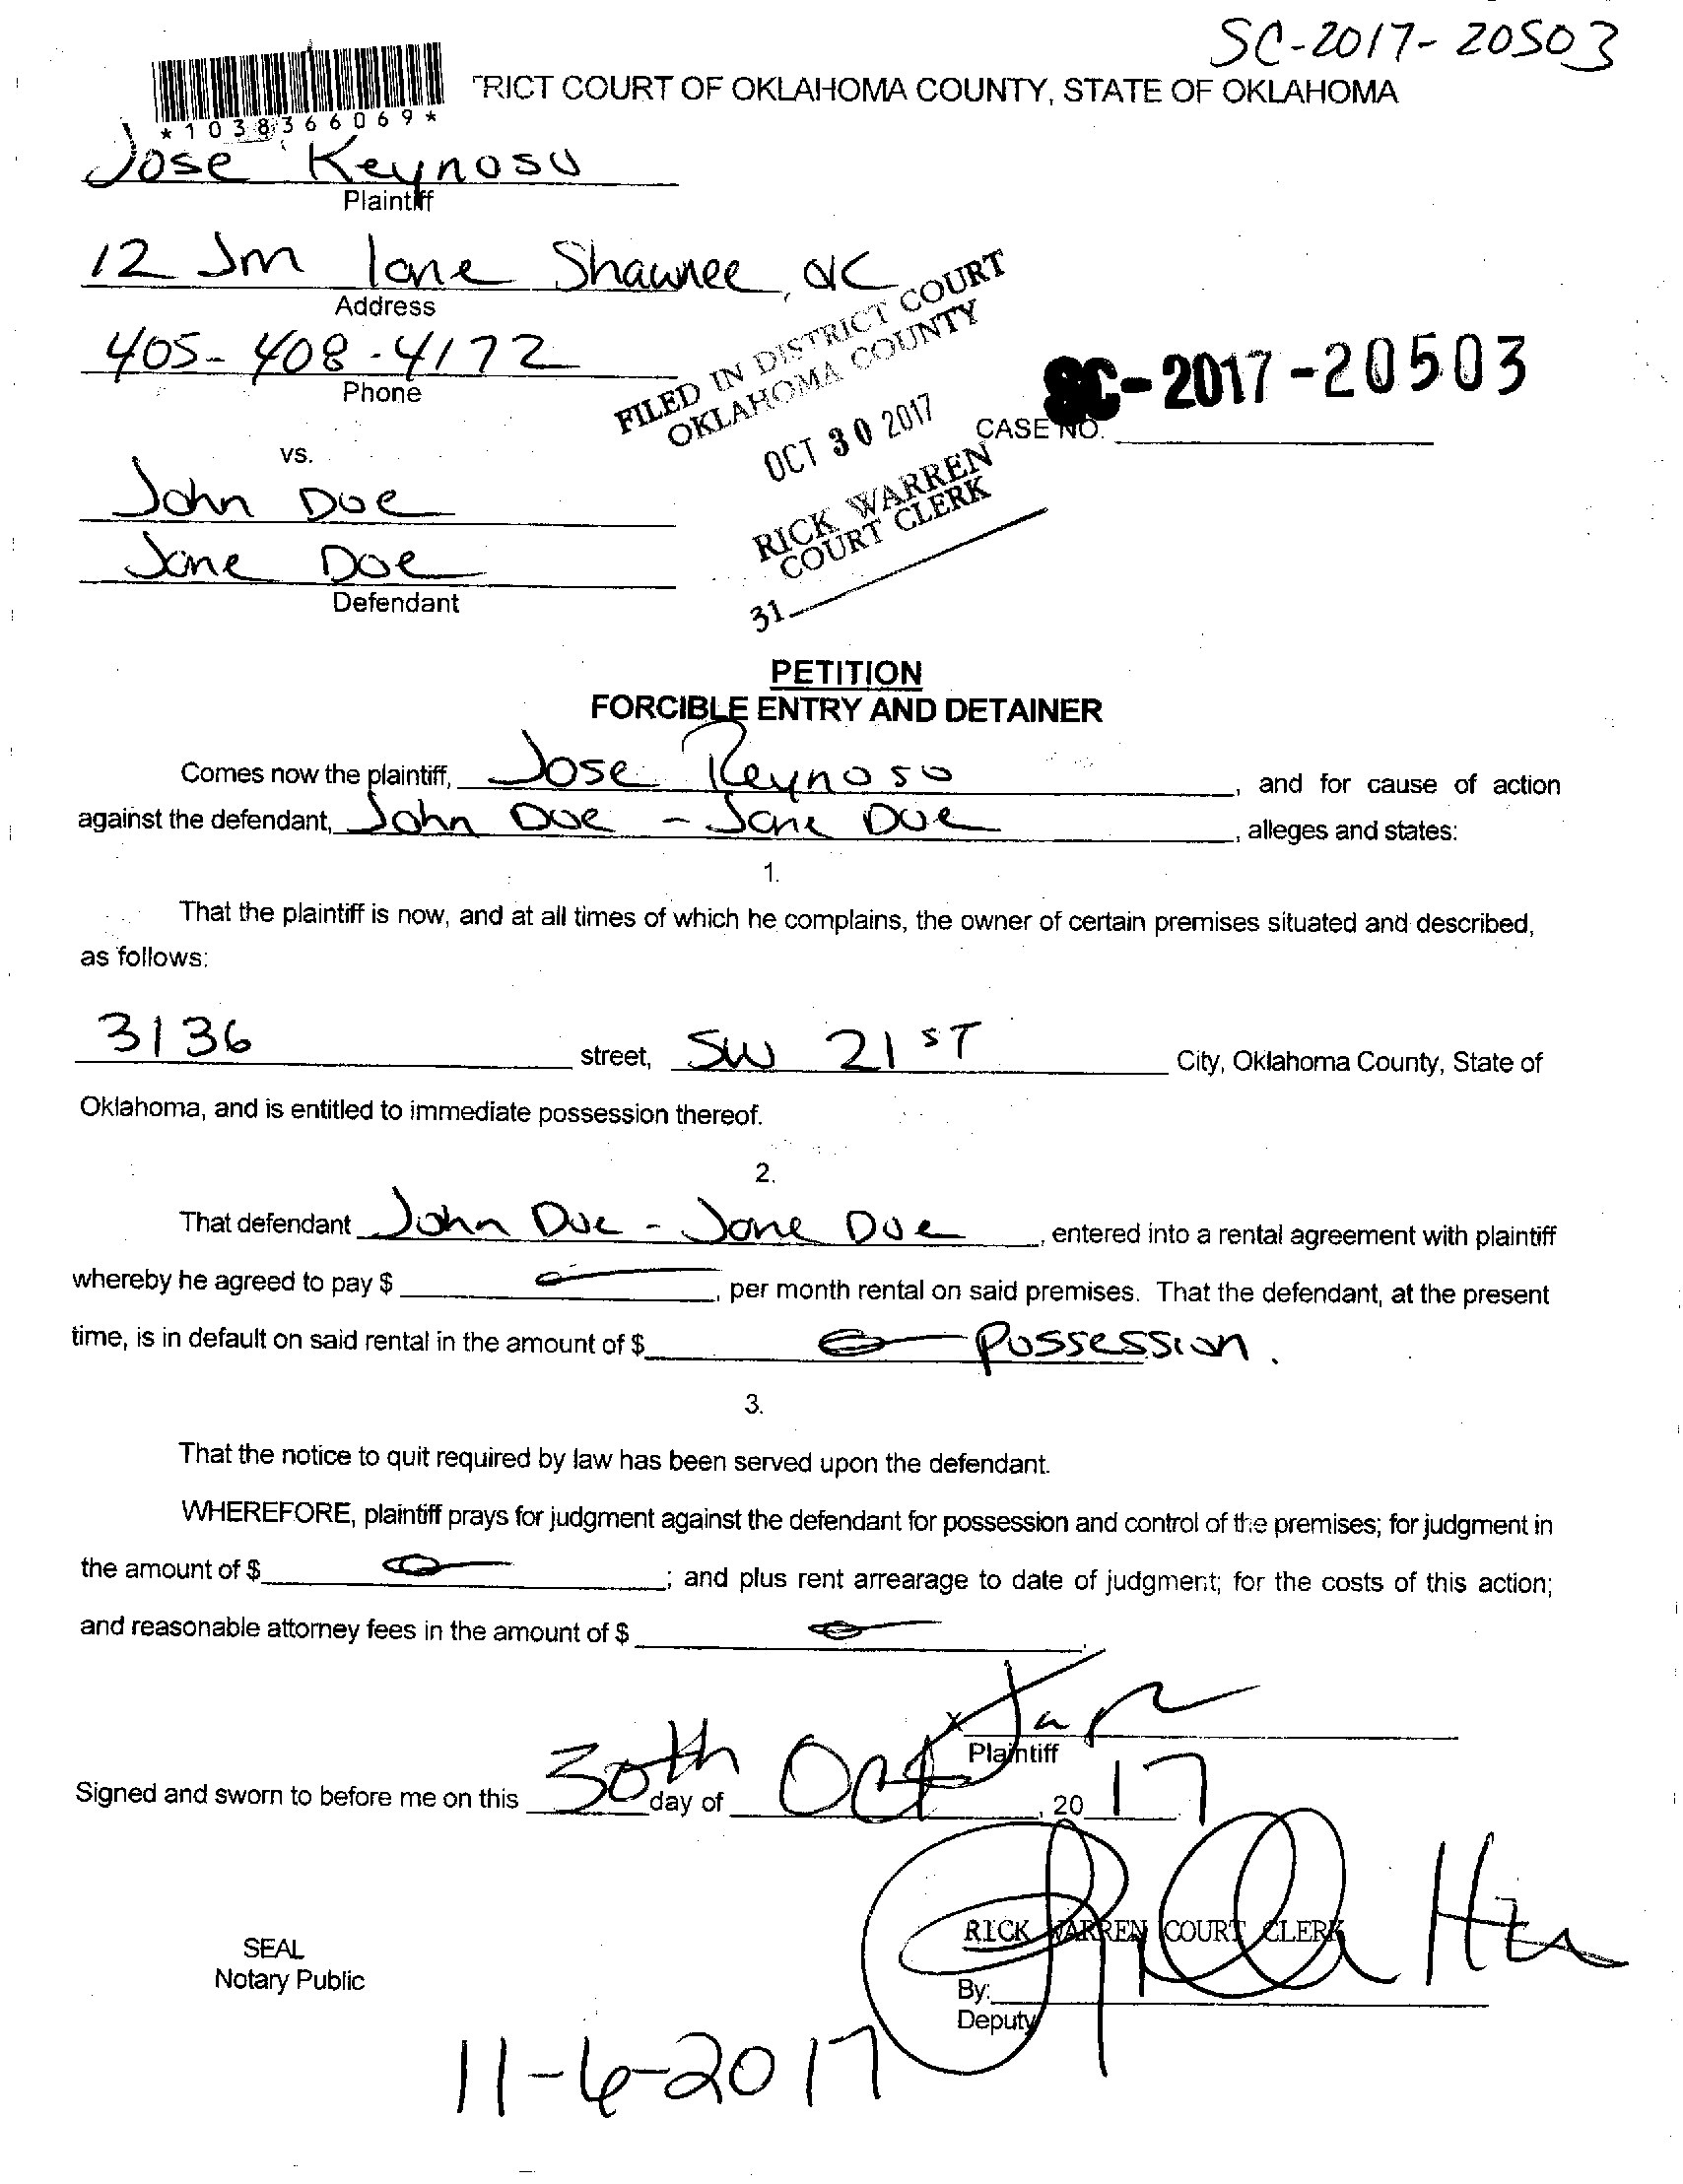 SC-2017-20503
TRICT COURT OF OKLAHOMA COUNTY, STATE OF OKLAHOMA
*1038366069*
Jose Reynoso
Plaintiff
12 Jm lane Shawnee, OK
Address
405-408-4172
Phone
FILED IN DISTRICT COURT
OKLAHOMA COUNTY
OCT 30 2017
RICK WARREN
COURT CLERK
31
SC-2017-20503
CASE NO.
vs.
John Doe
Jane Doe
Defendant
PETITION
FORCIBLE ENTRY AND DETAINER
Comes now the plaintiff, Jose Reynoso, and for cause of action
against the defendant, John Doe - Jane Doe, alleges and states:
1.
That the plaintiff is now, and at all times of which he complains, the owner of certain premises situated and described,
as follows:
3136 street, SW 21ST City, Oklahoma County, State of
Oklahoma, and is entitled to immediate possession thereof.
2.
That defendant John Doe - Jane Doe, entered into a rental agreement with plaintiff
whereby he agreed to pay $ , per month rental on said premises. That the defendant, at the present
time, is in default on said rental in the amount of $ Possession.
3.
That the notice to quit required by law has been served upon the defendant.
WHEREFORE, plaintiff prays for judgment against the defendant for possession and control of the premises; for judgment in
the amount of $ ; and plus rent arrearage to date of judgment; for the costs of this action;
and reasonable attorney fees in the amount of $ .
X
Plaintiff
Signed and sworn to before me on this 30th day of Oct, 2017
RICK WARREN COURT CLERK
SEAL
Notary Public
By:
Deputy
11-6-2017